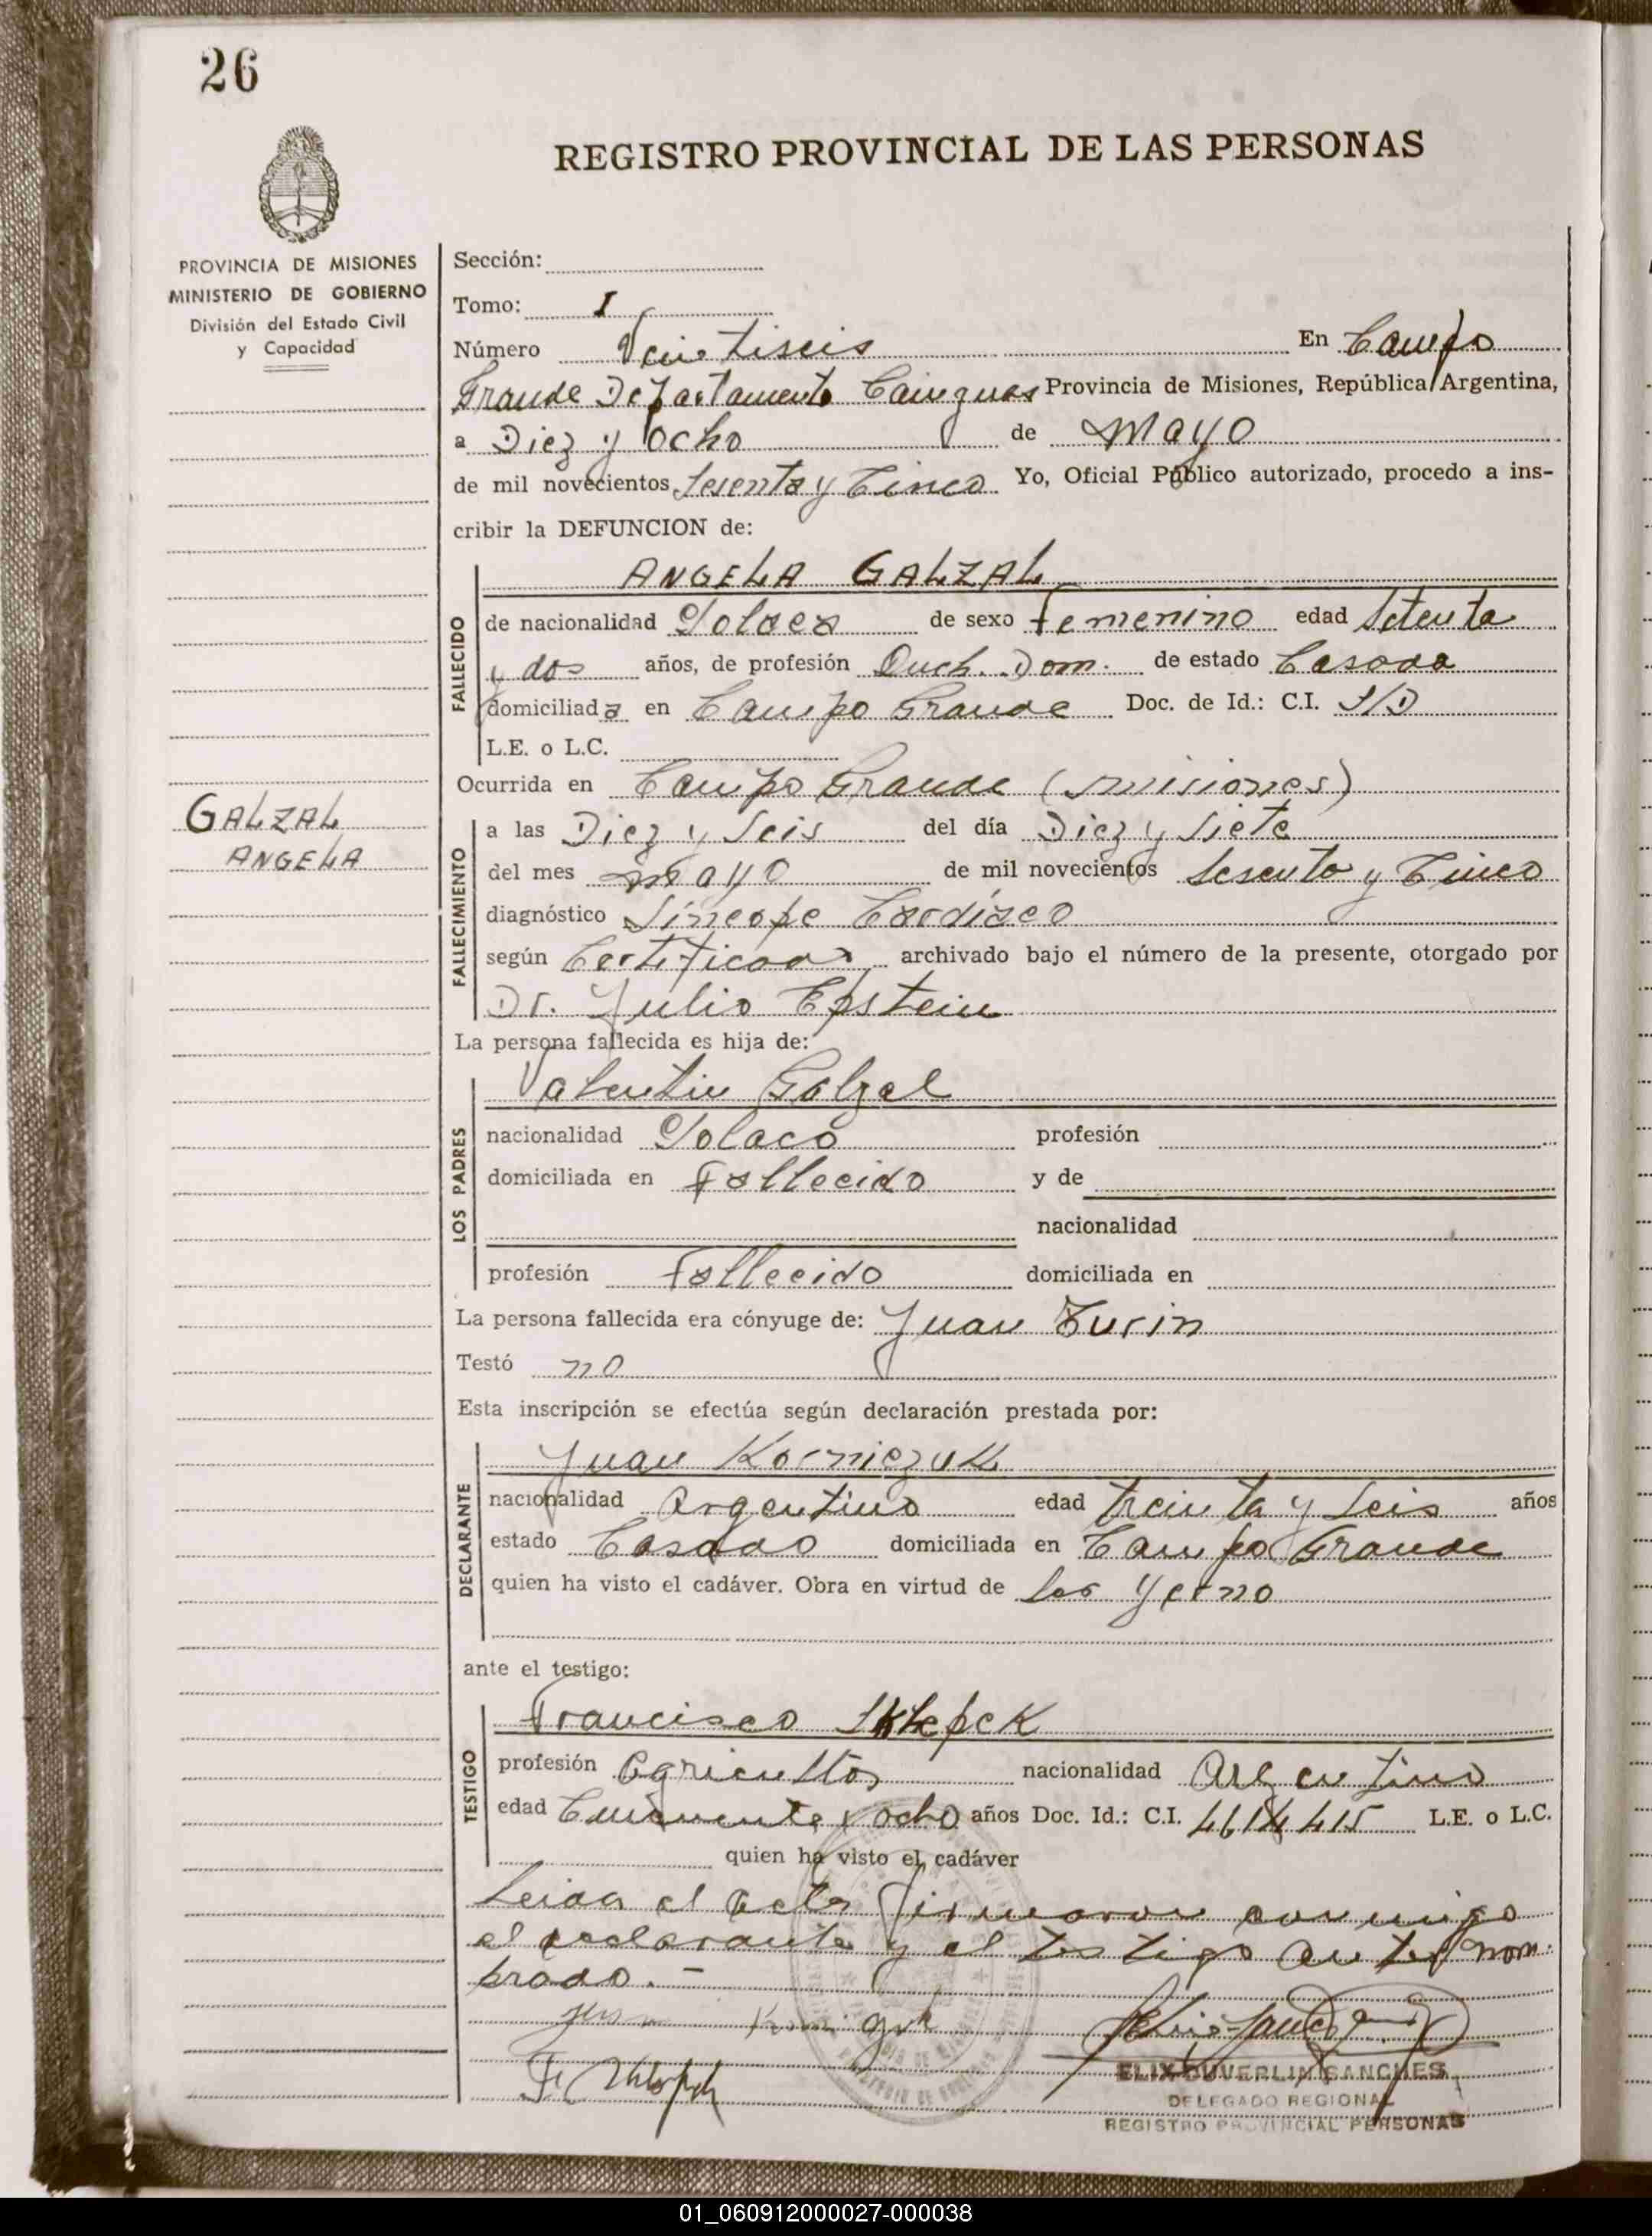 26
REGISTRO PROVINCIAL DE LAS PERSONAS
PROVINCIA DE MISIONES
MINISTERIO DE GOBIERNO
División del Estado Civil
y Capacidad
GALZAL
ANGELA
Sección:
Tomo: I
Número Veintiseis En Campo
Grande Departamento Cainguas Provincia de Misiones, República Argentina,
a Diez y Ocho de Mayo
de mil novecientos Sesenta y Cinco Yo, Oficial Público autorizado, procedo a ins-
cribir la DEFUNCION de:
FALLECIDO
ANGELA GALZAL
de nacionalidad Polaca de sexo Femenino edad Setenta
y dos años, de profesión Queh. Dom. de estado Casada
domiciliada en Campo Grande Doc. de Id.: C.I. S/D
L.E. o L.C.
Ocurrida en Campo Grande (Misiones)
FALLECIMIENTO
a las Diez y Seis del día Diez y Siete
del mes Mayo de mil novecientos Sesenta y Cinco
diagnóstico Síncope Cardíaco
según Certificado archivado bajo el número de la presente, otorgado por
Dr. Julio Epstein
La persona fallecida es hija de:
LOS PADRES
Valentin Galzal
nacionalidad Polaco profesión
domiciliada en Fallecido y de
nacionalidad
profesión Fallecido domiciliada en
La persona fallecida era cónyuge de: Juan Turin
Testó no
Esta inscripción se efectúa según declaración prestada por:
DECLARANTE
Juan Korniezuk
nacionalidad Argentino edad treinta y Seis años
estado Casado domiciliada en Campo Grande
quien ha visto el cadáver. Obra en virtud de Ser Yerno
ante el testigo:
TESTIGO
Francisco
profesión Agricultor nacionalidad Argentino
edad Cincuenta y ocho años Doc. Id.: C.I. L.E. o L.C.
quien ha visto el cadáver
Leida el acta firmaron conmigo
el declarante y el testigo antes nom-
brado.-
ELIX DUVERLIN SANCHES
DELEGADO REGIONAL
REGISTRO PROVINCIAL PERSONAS
01_060912000027-000038